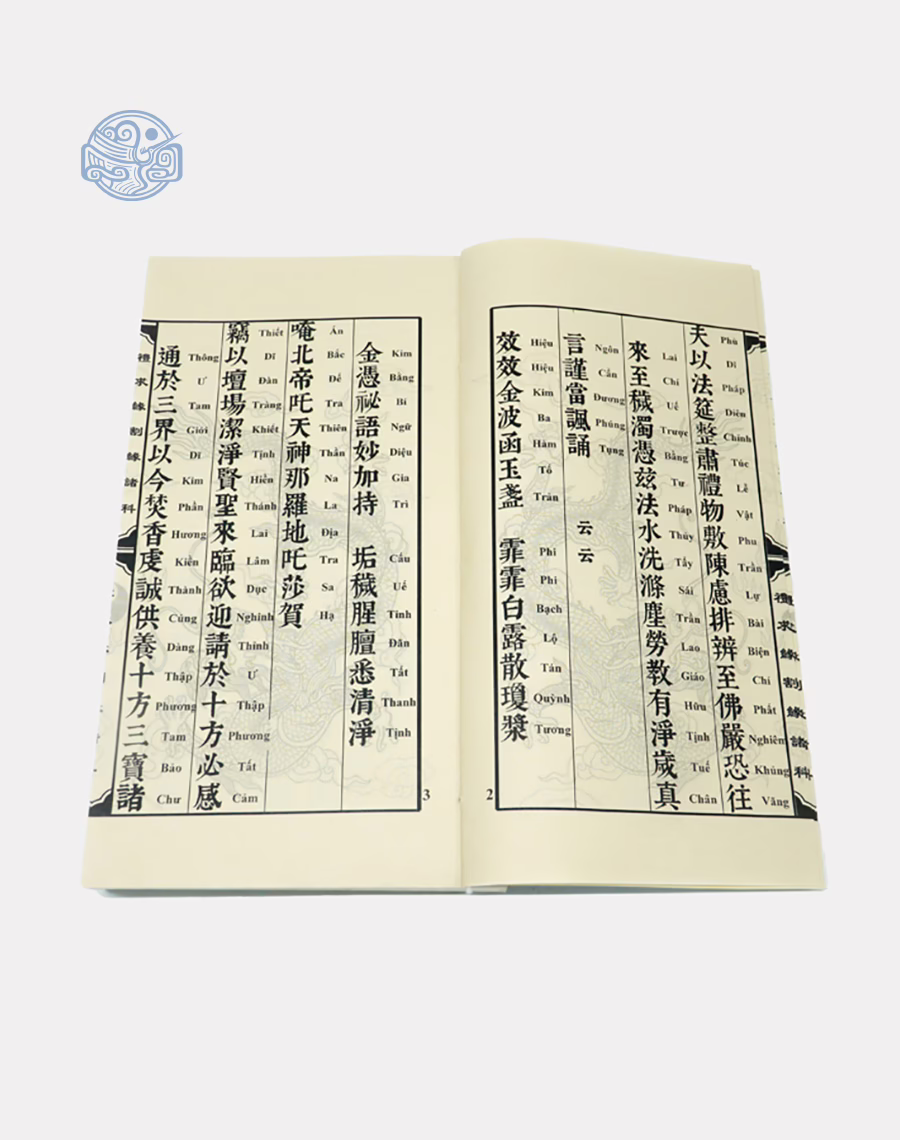 夫以法筵整肅禮物敷陳慮排辨至佛嚴恐往
Phù Dĩ Pháp Diên Chỉnh Túc Lễ Vật Phu Trần Lự Bài Biện Chí Phật Nghiêm Khủng Vãng
來至穢濁憑茲法水洗滌塵勞教有淨歲真
Lai Chí Uế Trược Bằng Tư Pháp Thủy Tẩy Sái Trần Lao Giáo Hữu Tịnh Tuế Chân
言謹當諷誦 云云
Ngôn Cẩn Đương Phúng Tụng
效效金波函玉盞 霏霏白露散瓊漿
Hiệu Hiệu Kim Ba Hàm Tố Trản Phi Phi Bạch Lộ Tán Quỳnh Tương
2
金憑祕語妙加持 垢穢腥膻悉清淨
Kim Bằng Bí Ngữ Diệu Gia Trì Cấu Uế Tinh Đãn Tất Thanh Tịnh
唵北帝吒天神那羅地吒莎賀
Án Bắc Đế Tra Thiên Thần Na La Địa Tra Sa Hạ
竊以壇場潔淨賢聖來臨欲迎請於十方必感
Thiết Dĩ Đàn Tràng Khiết Tịnh Hiền Thánh Lai Lâm Dục Nghinh Thỉnh Ư Thập Phương Tất Cảm
通於三界以今焚香虔誠供養十方三寶諸
Thông Ư Tam Giới Dĩ Kim Phần Hương Kiền Thành Cúng Dàng Thập Phương Tam Bảo Chư
3
禮求緣割緣諸科